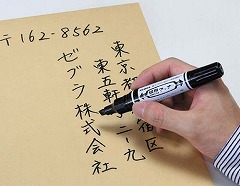 〒162-8562
東京都 宿区
東五軒 二-九
ゼブラ株式会社